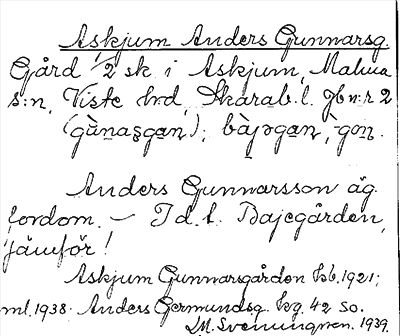 Askjum Anders Gunnarsg.
Gård 1/2 sk i Askjum, Malma
s:n, Viste hd, Skarab. l. Jb n:r 2
(gùnaʂgan); bàjəgan, gɷn.
Anders Gunnarsson äg.
fordom. – I d. t. Bajegården,
jämför!
Askjum Gunnarsgården hb. 1921;
ml. 1938. Anders Germundsg. kg. 42 So.
M. Svenungren. 1939.